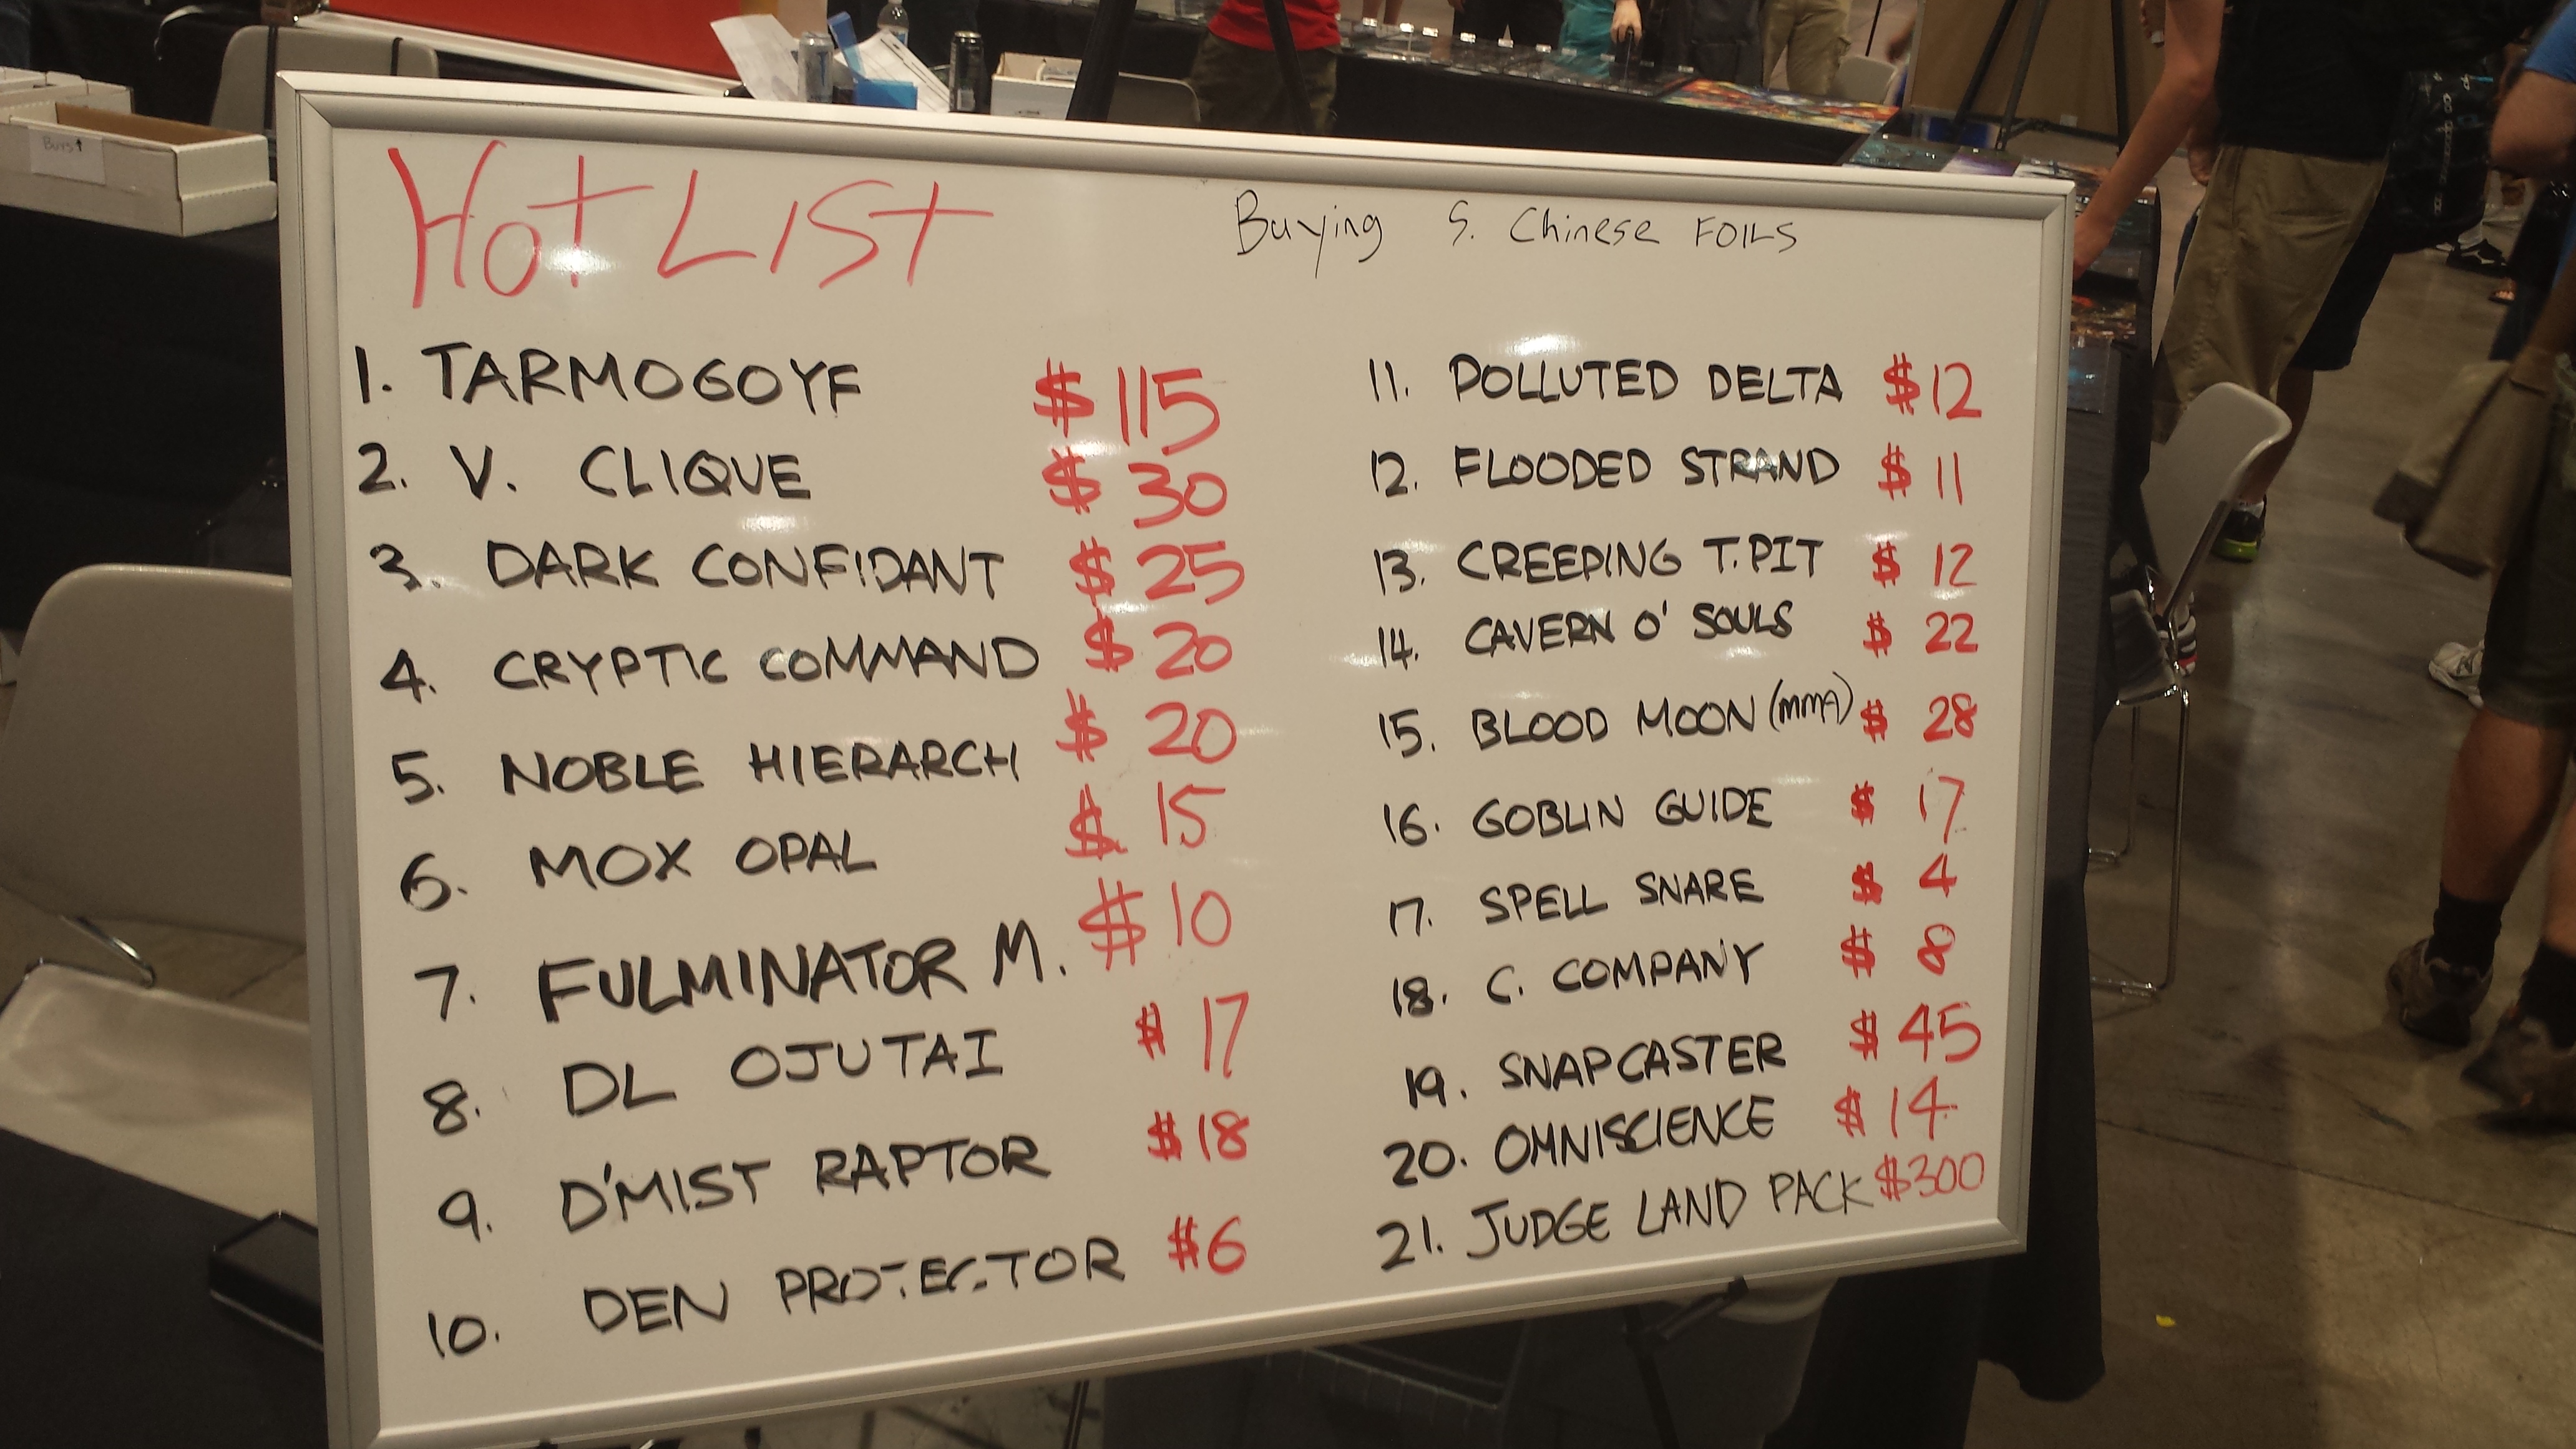 Buys↑
Hot LIST
Buying S. Chinese FOILS
1. TARMOGOYF $115
2. V. CLIQUE $30
3. DARK CONFIDANT $25
4. CRYPTIC COMMAND $20
5. NOBLE HIERARCH $20
6. MOX OPAL $15
7. FULMINATOR M. $10
8. DL OJUTAI $17
9. D'MIST RAPTOR $18
10. DEN PROTECTOR $6
11. POLLUTED DELTA $12
12. FLOODED STRAND $11
13. CREEPING T.PIT $12
14. CAVERN O' SOULS $22
15. BLOOD MOON (MMA) $28
16. GOBLIN GUIDE $17
17. SPELL SNARE $4
18. C. COMPANY $8
19. SNAPCASTER $45
20. OMNISCIENCE $14
21. JUDGE LAND PACK $300